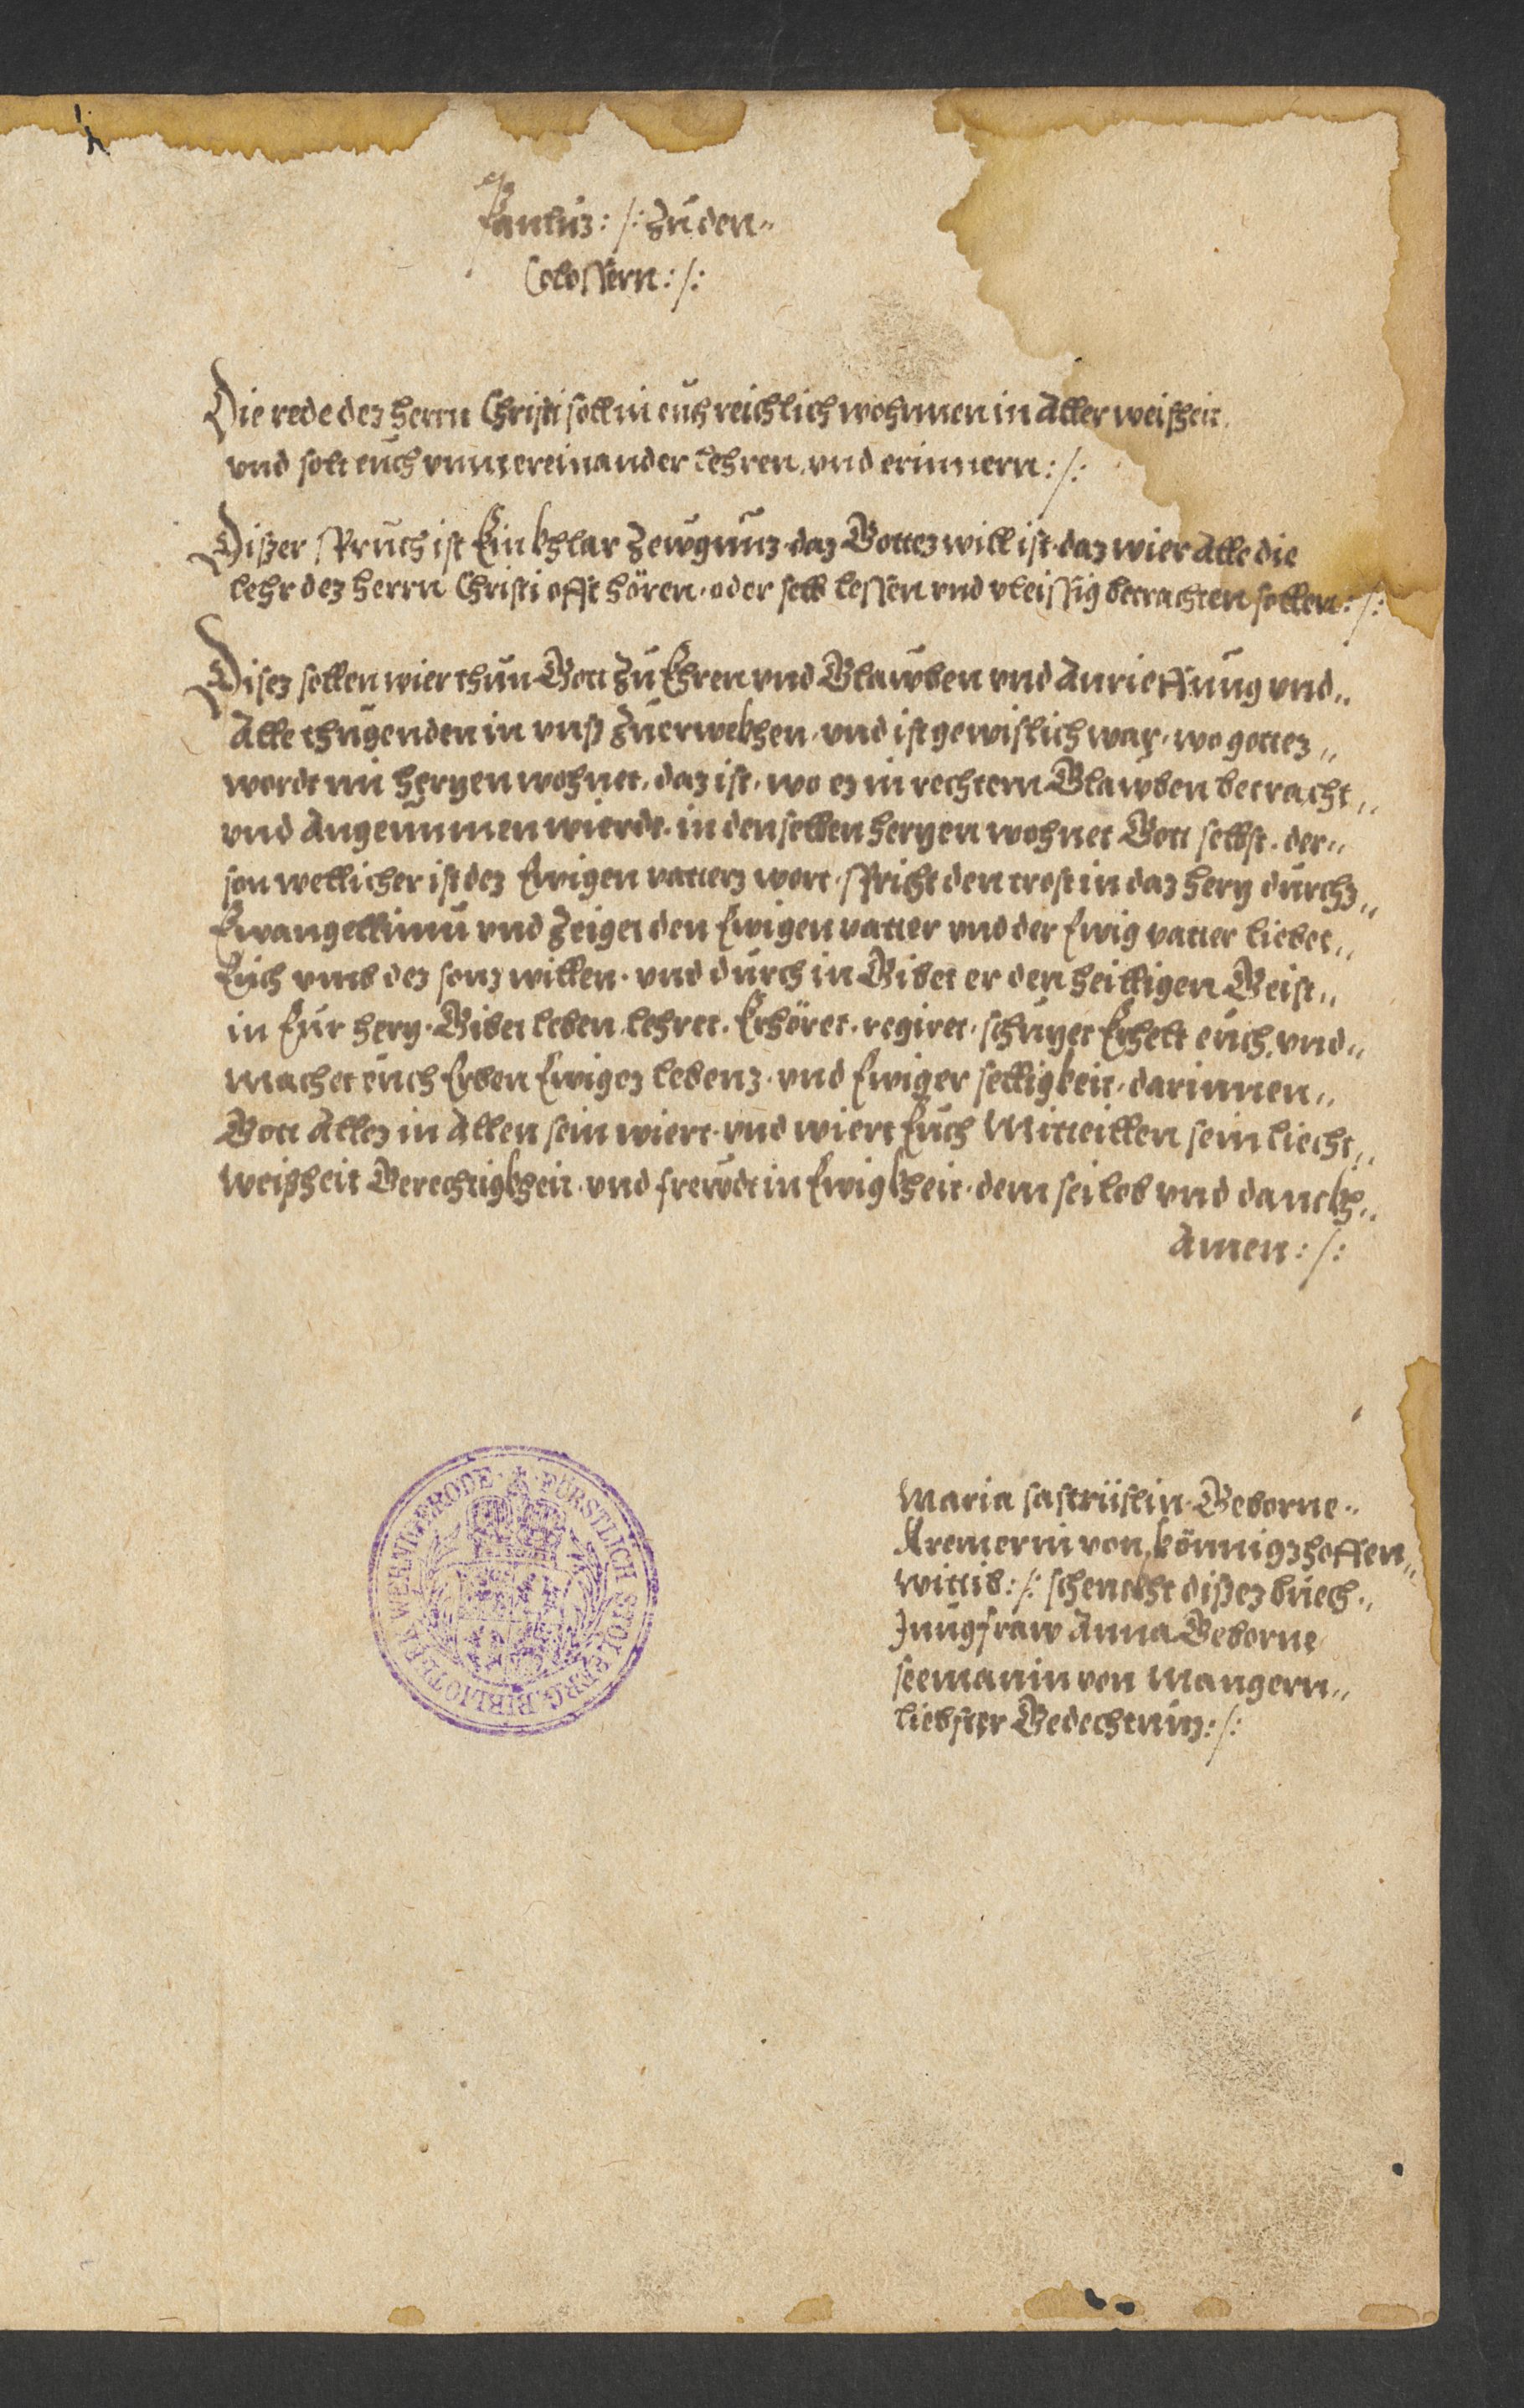 Paulus :/: Zu den„
Colossern :/:
Die rede des Herrn Christi soll in euch reichlich wohnnen in Aller weißheit.
vnd solt euch vnntereinander lehren vnd erinnern :/:
Dißer spruch ist Ein khlar Zewgnus das Gottes will ist das wier Alle die
lehr des Herrn Christi offt hören, oder selb lessen vnd vleissig betrachten sollen :/:
Dises sollen wier thun Gott Zu Ehren vnd Glawben vnd Anrieffung vnd„
Alle thugenden in vnß Zuerwekhen, vnd ist gewislich war, wo gottes„
wordt im herzen wohnet, das ist, wo es in rechtem Glawben betracht„
vnd Angenummen wierdt, in denselben herzen wohnet Gott selbst. der„
son wellicher ist des Ewigen vatters wort, spricht den trost in das herz durchs„
Ewangellium vnd Zeiget den Ewigen vatter vnd der Ewig vatter liebet„
Euch vmb des sons willen. vnd durch in Gibet er den heilligen Geist„
in Eur herz. Gibet leben, lehret. Erhöret. regiret. schuzet Erhelt euch, vnd„
Machet euch Erben Ewiges lebens. vnd Ewiger selligkeit, darinnen„
Gott Alles in Allen sein wiert. vnd wiert Euch Mitteillen sein liecht„
Weißheit Gerechtigkheit. vnd frewdt in Ewigkheit. dem sei lob vnd danckh„
Amen :/:
Maria sastrüslin Geborne„
Kremerin von könnigshoffen„
Wittib :/: schenckht dißes buech„
Jungfraw Anna Geborne
seemanin von Mangern„
liebster Gedechtnus :/:
FÜRSTLICH STOLBERG. BIBLIOTHEK WERNIGERODE